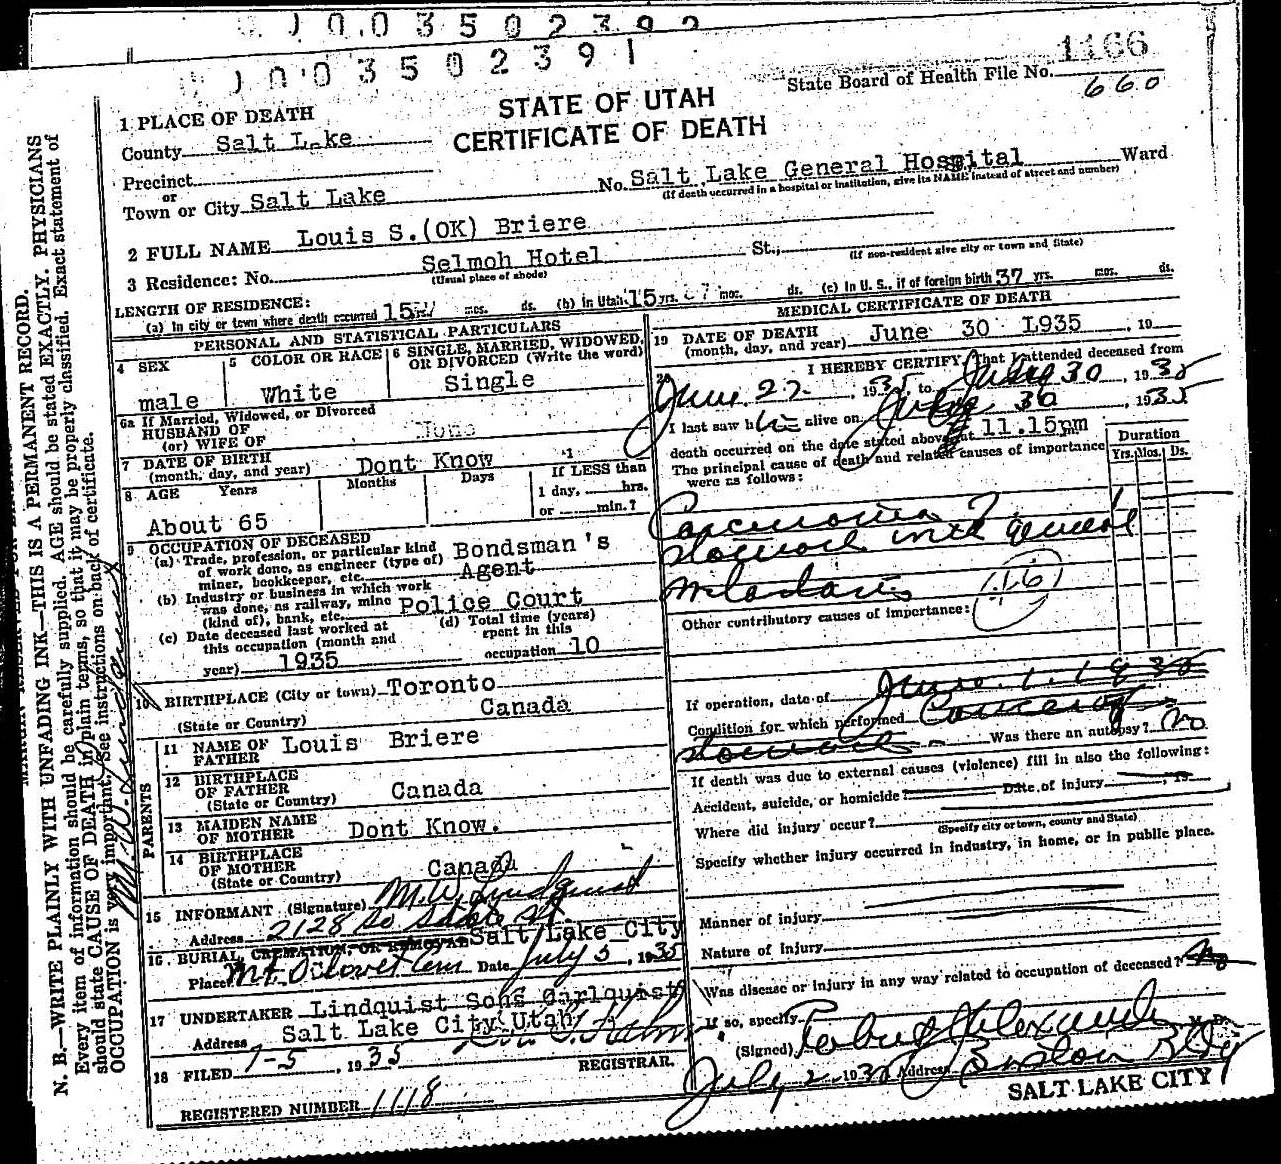 J 0 0 3 5 0 2 3 9 2
J 0 0 3 5 0 2 3 9 1
1166
State Board of Health File No.
660
STATE OF UTAH
CERTIFICATE OF DEATH
1 PLACE OF DEATH
County Salt Lake
Precinct
or
Town or City Salt Lake
No. Salt Lake General Hospital Ward
(If death occurred in a hospital or institution, give its NAME instead of street and number)
2 FULL NAME Louis S.(OK) Briere
3 Residence: No. Selmoh Hotel St.,
(Usual place of abode)
(If non-resident give city or town and State)
LENGTH OF RESIDENCE:
(a) In city or town where death occurred 15 yrs. mos. ds. (b) In Utah 15 yrs. mos. ds. (c) In U. S., if of foreign birth 37 yrs. mos. ds.
PERSONAL AND STATISTICAL PARTICULARS
4 SEX
male
5 COLOR OR RACE
White
6 SINGLE, MARRIED, WIDOWED, OR DIVORCED (Write the word)
Single
6a If Married, Widowed, or Divorced
HUSBAND OF
(or) WIFE OF
None
7 DATE OF BIRTH
(month, day, and year) Dont Know
8 AGE Years Months Days
About 65
If LESS than
1 day, hrs.
or min.?
9 OCCUPATION OF DECEASED
(a) Trade, profession, or particular kind
of work done, as engineer (type of)
miner, bookkeeper, etc. Bondsman's Agent
(b) Industry or business in which work
was done, as railway, mine
(kind of), bank, etc. Police Court
(c) Date deceased last worked at
this occupation (month and
year) 1935
(d) Total time (years)
spent in this
occupation 10
10 BIRTHPLACE (City or town) Toronto
(State or Country) Canada
PARENTS
11 NAME OF
FATHER Louis Briere
12 BIRTHPLACE
OF FATHER
(State or Country) Canada
13 MAIDEN NAME
OF MOTHER Dont Know.
14 BIRTHPLACE
OF MOTHER
(State or Country) Canada
15 INFORMANT (Signature) M.W. Lindquist
Address 2128 So State St.
Salt Lake City
16 BURIAL, CREMATION, OR REMOVAL
Place Mt. Olivet Cem Date July 5, 1935
17 UNDERTAKER Lindquist Sons Carlquist
Address Salt Lake City Utah
18 FILED 7-5, 1935 REGISTRAR.
REGISTERED NUMBER 1118
MEDICAL CERTIFICATE OF DEATH
19 DATE OF DEATH
(month, day, and year) June 30 1935, 19
20
I HEREBY CERTIFY, That I attended deceased from
June 22, 1935 to 30, 1935
I last saw him alive on 30, 1935
death occurred on the date stated above at 11.15pm
The principal cause of death and related causes of importance
were as follows:
Duration
Yrs. Mos. Ds.
Carcinoma of
stomach with general
metastasis
(46)
Other contributory causes of importance:
If operation, date of June. 1. 1935
Condition for which performed Cancer of
stomach Was there an autopsy? No
If death was due to external causes (violence) fill in also the following:
Accident, suicide, or homicide? Date of injury , 19
Where did injury occur?
(Specify city or town, county and State)
Specify whether injury occurred in industry, in home, or in public place.
Manner of injury
Nature of injury
Was disease or injury in any way related to occupation of deceased? No
If so, specify
(Signed) Alexander M. D.
July 2 1935 Address Boston Bldg
SALT LAKE CITY
N. B.—WRITE PLAINLY WITH UNFADING INK—THIS IS A PERMANENT RECORD.
Every item of information should be carefully supplied. AGE should be stated EXACTLY. PHYSICIANS
should state CAUSE OF DEATH in plain terms, so that it may be properly classified. Exact statement of
OCCUPATION is very important. See instructions on back of certificate.